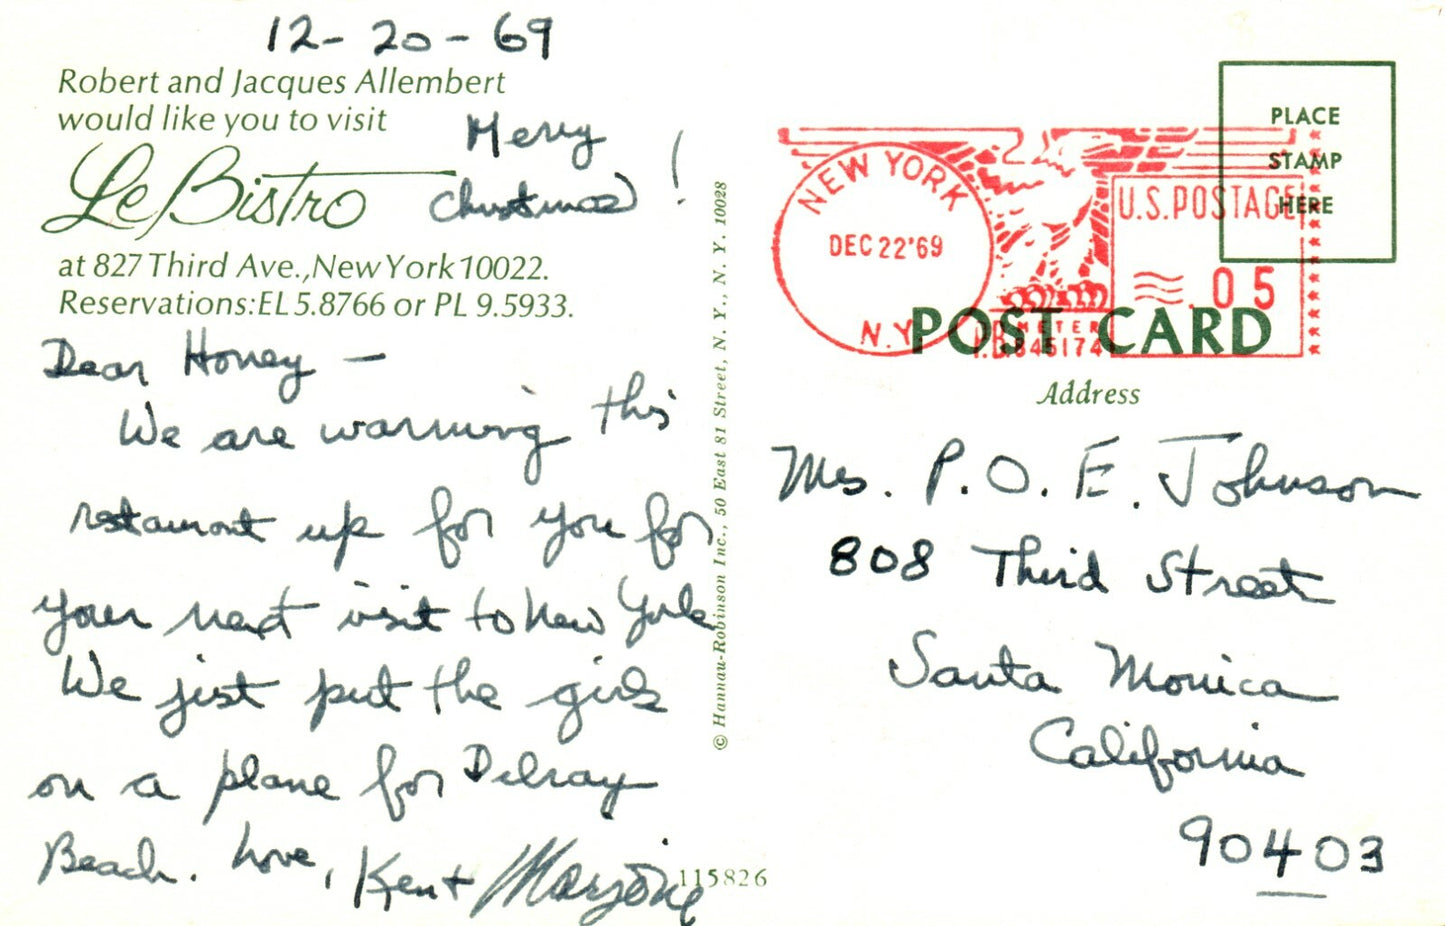 12-20-69
Robert and Jacques Allembert
would like you to visit
Le Bistro
Merry
Christmas!
at 827 Third Ave., New York 10022.
Reservations: EL 5.8766 or PL 9.5933.
Dear Honey —
We are warming this
restaurant up for you for
your next visit to New York
We just put the girls
on a plane for Delray
Beach. Love, Kent + Marjorie
115826
© Hannau-Robinson Inc., 50 East 81 Street, N. Y., N. Y. 10028
PLACE
STAMP
HERE
NEW YORK
N.Y
DEC 22 '69
U.S. POSTAGE
.05
METER
P.B. 845174
POST CARD
Address
Mrs. P. O. E. Johnson
808 Third Street
Santa Monica
California
90403